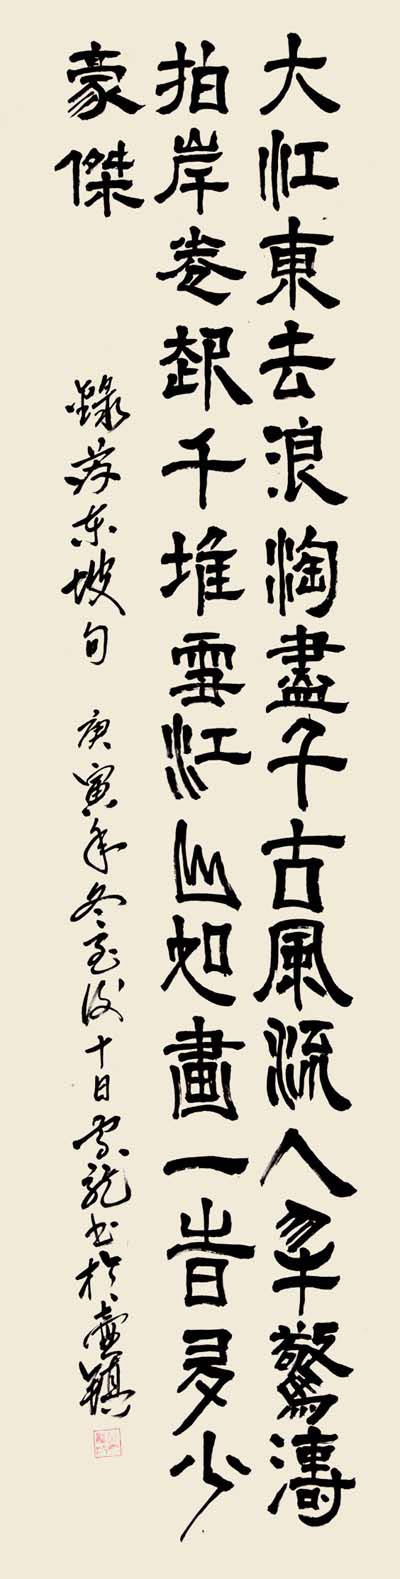 大江東去浪淘盡千古風流人物驚濤
拍岸卷起千堆雪江山如畫一旹多少
豪傑
錄蘇東坡句 庚寅年冬至後十日龍書於壺鎮